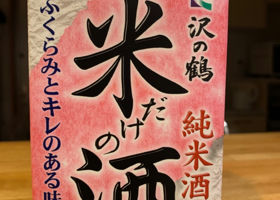 沢の鶴
純米酒
米だけの酒
ふくらみとキレのある味